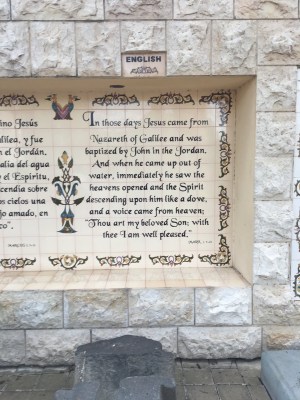 ENGLISH
ino Jesús
lilea, y fue
n el Jordán.
alía del agua
y el Espíritu,
cendía sobre
os cielos una
jo amado, en
co".
In those days Jesus came from
Nazareth of Galilee and was
baptized by John in the Jordan.
And when he came up out of
water, immediately he saw the
heavens opened and the Spirit
descending upon him like a dove,
and a voice came from heaven;
"Thou art my beloved Son; with
thee I am well pleased."